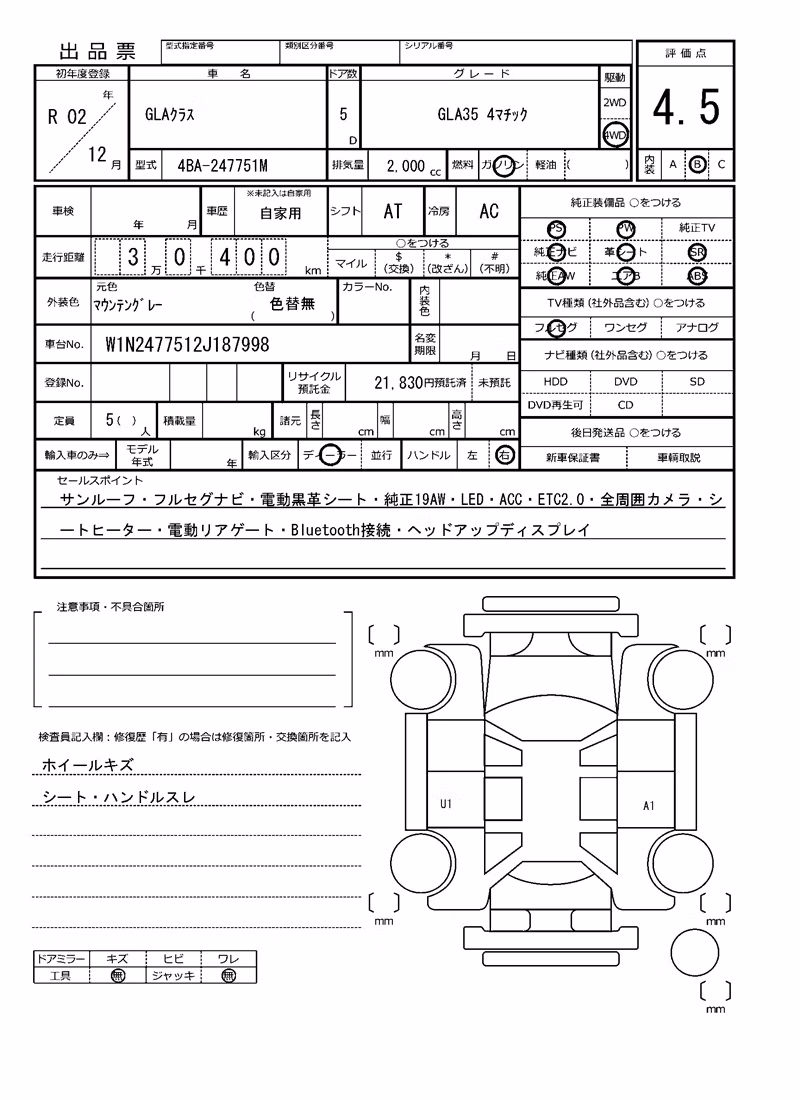 出品票
型式指定番号 類別区分番号 シリアル番号
評価点
初年度登録 車名 ドア数 グレード 駆動
R 02 年 12 月
GLAクラス
5 D
GLA35 4マチック
2WD
4WD
4.5
型式 4BA-247751M 排気量 2,000 cc 燃料 ガソリン 軽油 ( )
内装 A B C
車検 年 月 車歴 ※未記入は自家用 自家用 シフト AT 冷房 AC
純正装備品 ○をつける
PS PW 純正TV
純正ナビ 革シート SR
純正AW エアB ABS
走行距離 3 万 0 千 4 0 0 km
○をつける
マイル $(交換) *(改ざん) #(不明)
外装色 元色 マウンテングレー 色替 ( 色替無 ) カラーNo. 内装色
TV種類(社外品含む)○をつける
フルセグ ワンセグ アナログ
車台No. W1N2477512J187998 名変期限 月 日
ナビ種類(社外品含む)○をつける
HDD DVD SD
DVD再生可 CD
登録No. リサイクル預託金 21,830円預託済 未預託
定員 5( )人 積載量 kg 諸元 長さ cm 幅 cm 高さ cm
後日発送品 ○をつける
新車保証書 車輌取説
輸入車のみ⇒ モデル年式 年 輸入区分 ディーラー 並行 ハンドル 左 右
セールスポイント
サンルーフ・フルセグナビ・電動黒革シート・純正19AW・LED・ACC・ETC2.0・全周囲カメラ・シ
ートヒーター・電動リアゲート・Bluetooth接続・ヘッドアップディスプレイ
注意事項・不具合箇所
検査員記入欄:修復歴「有」の場合は修復箇所・交換箇所を記入
ホイールキズ
シート・ハンドルスレ
mm mm
U1 A1
mm mm
mm
ドアミラー キズ ヒビ ワレ
工具 無 ジャッキ 無